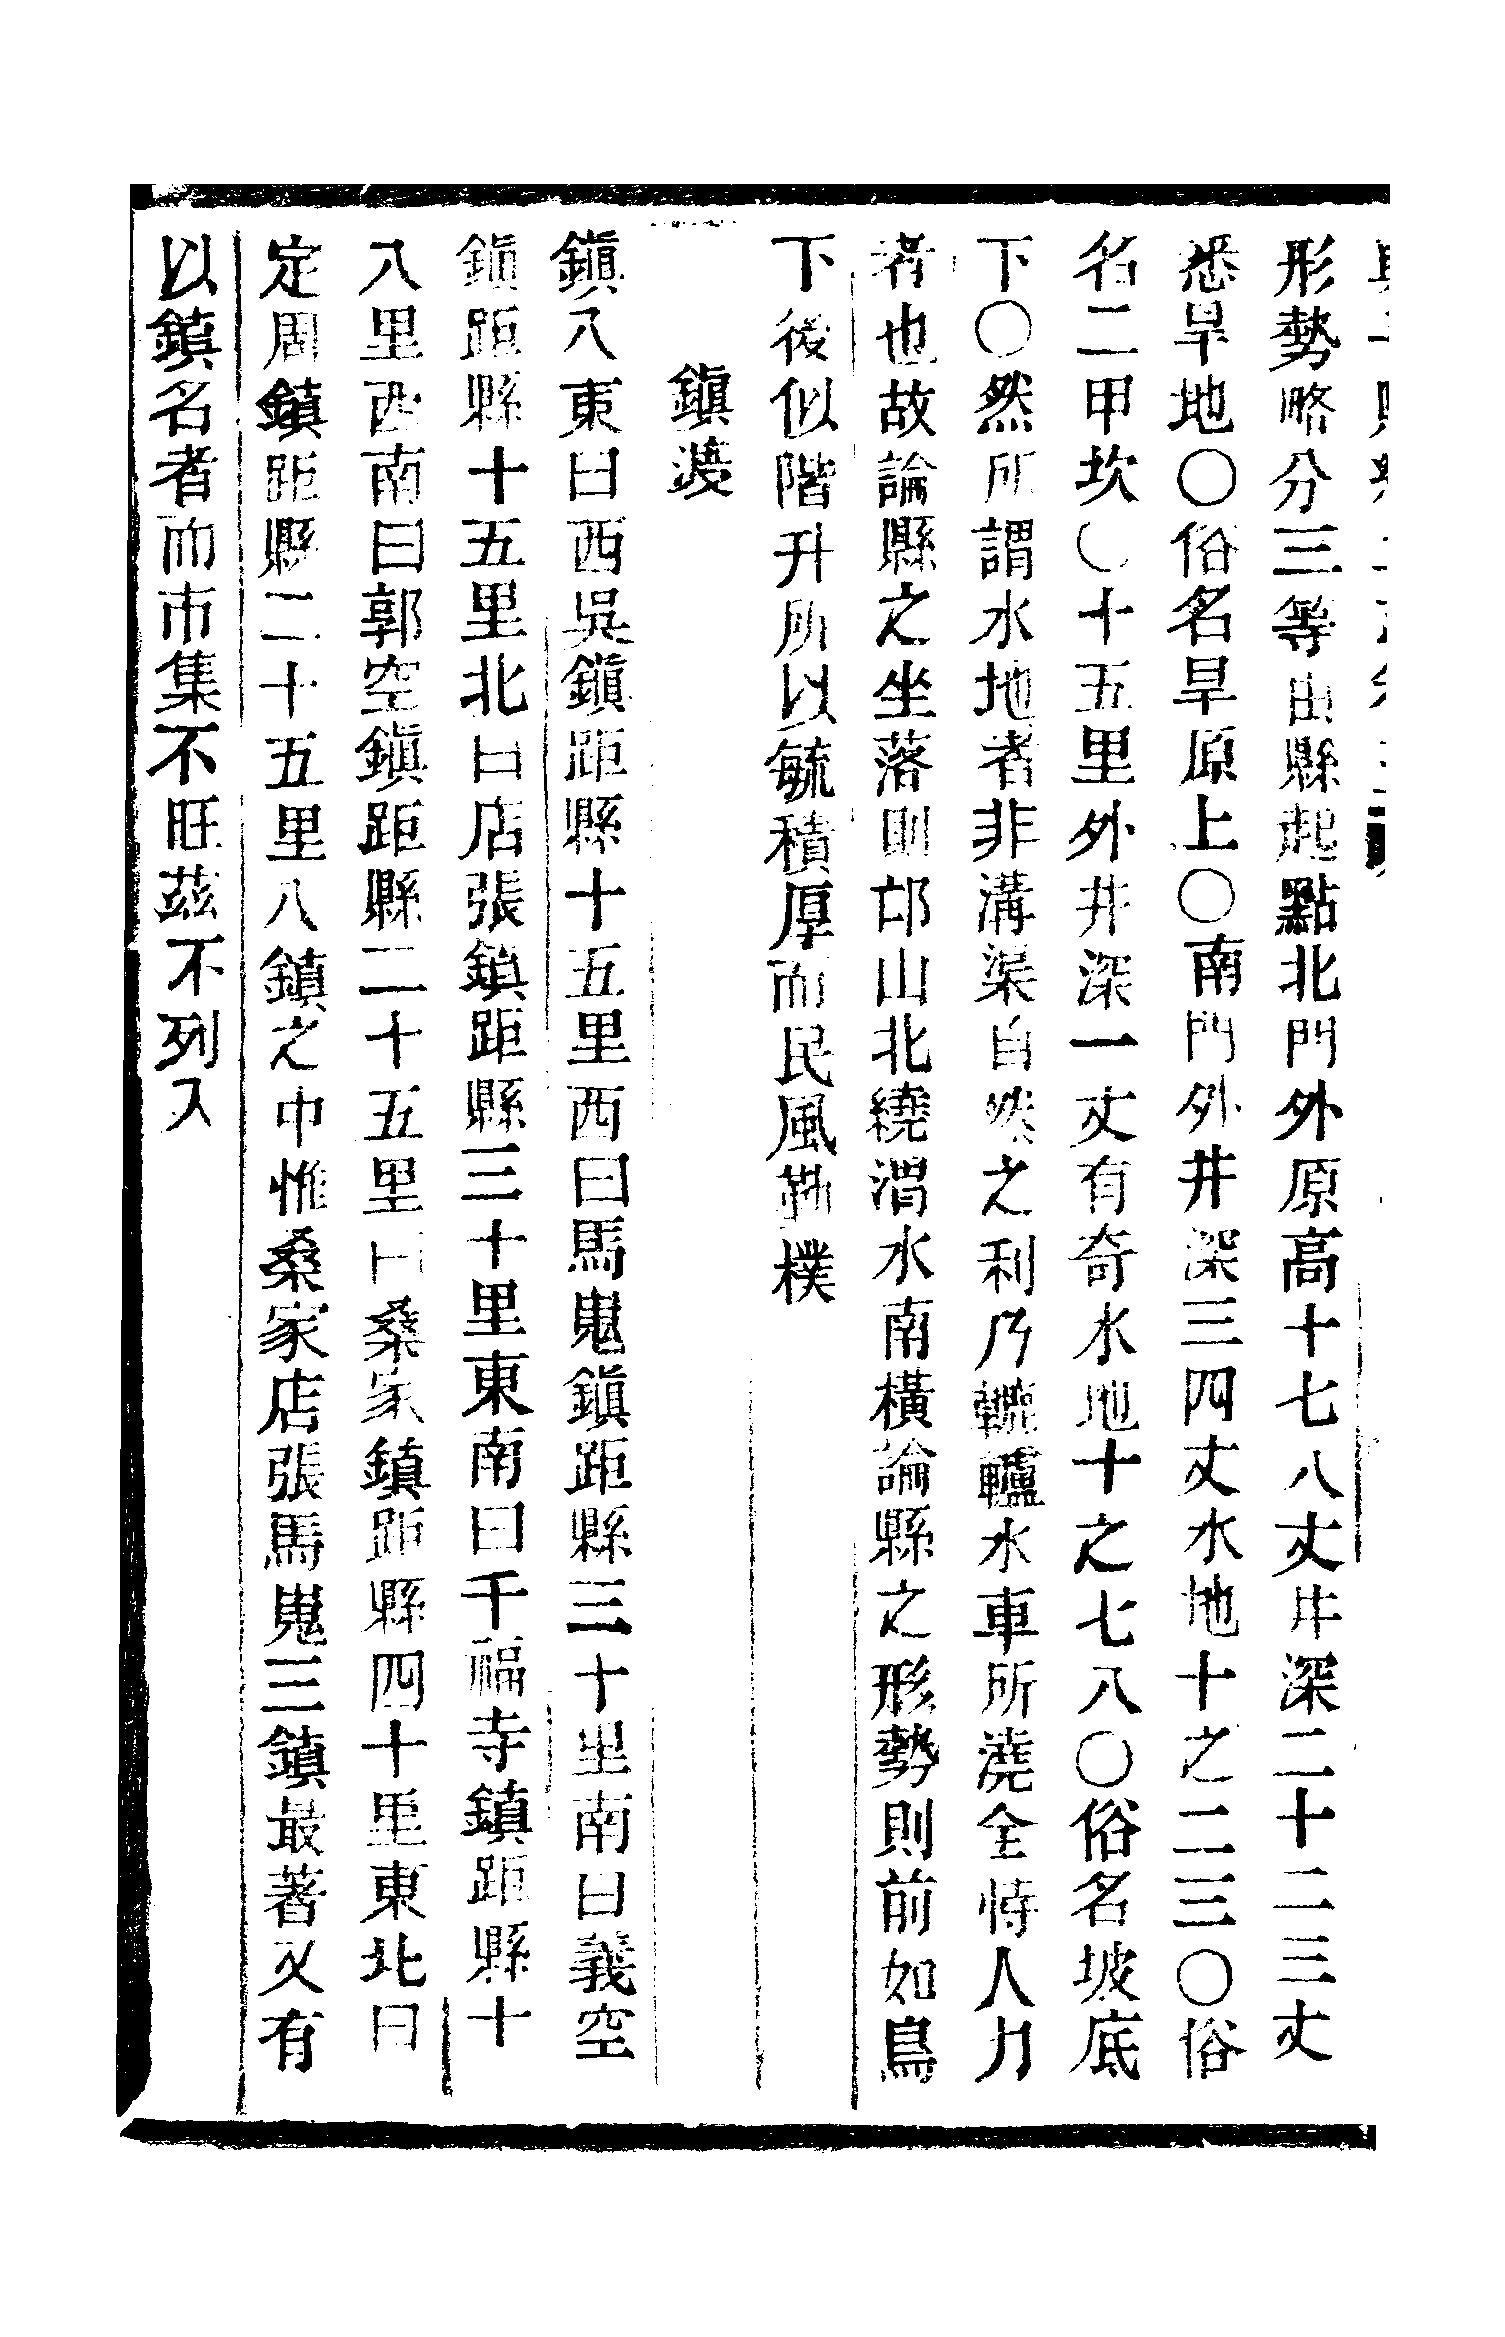 形勢略分三等由縣起點北門外原高十七八丈井深二十二三丈
悉旱地〇俗名旱原上〇南門外井深三四丈水地十之二三〇俗
名二甲坎〇十五里外井深一丈有奇水地十之七八〇俗名坡底
下〇然所謂水地者非溝渠自然之利乃轆轤水車所澆全恃人力
者也故論縣之坐落則邙山北繞渭水南橫論縣之形勢則前如鳥
下後似階升所以毓積厚而民風勤樸
鎮渡
鎮八東曰西吳鎮距縣十五里西曰馬嵬鎮距縣三十里南曰義空
鎮距縣十五里北曰店張鎮距縣三十里東南曰千福寺鎮距縣十
八里西南曰郭空鎮距縣二十五里曰桑家鎮距縣四十里東北曰
定周鎮距縣二十五里八鎮之中惟桑家店張馬嵬三鎮最著又有
以鎮名者而市集不旺茲不列入